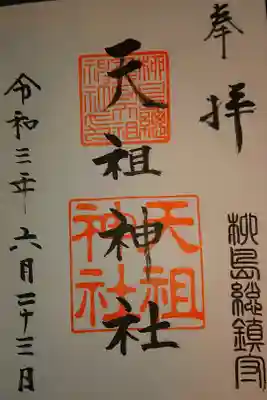 奉拝
柳島総鎮守
天祖神社
天祖
神社
令和三年六月二十三日